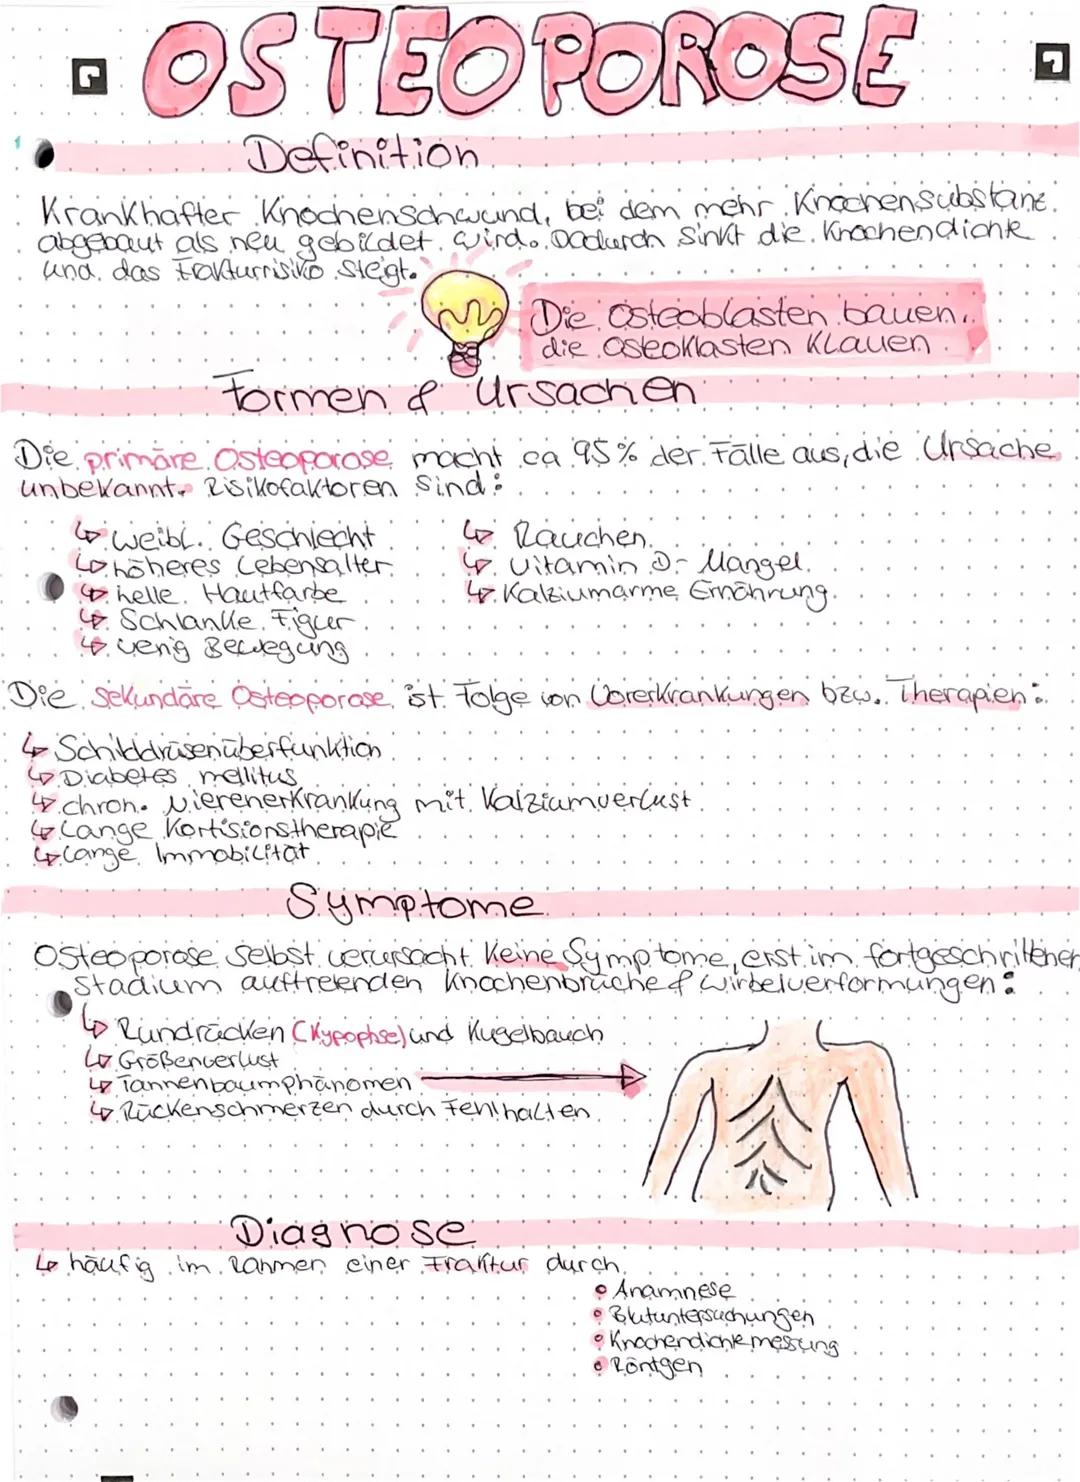 OSTEOPOROSE
Definition
Krankhafter Knochenschwund, bei dem mehr Knochensubstanz
abgebaut als neu gebildet wird. Dadurch sinkt die Knochendichte
und das Frakturrisiko steigt.
Die Osteoblasten bauen,
die Osteoklasten klauen
Formen & Ursachen
Die primäre Osteoporose macht ca 95% der Fälle aus, die Ursache
unbekannt. Risikofaktoren sind:
↳ weibl. Geschlecht
↳ höheres Lebensalter
↳ helle Hautfarbe
↳ Schlanke Figur
↳ wenig Bewegung
↳ Rauchen
↳ Vitamin D-Mangel
↳ Kalziumarme Ernährung
Die sekundäre Osteoporose ist Folge von Vorerkrankungen bzw. Therapien:
↳ Schilddrüsenüberfunktion
↳ Diabetes mellitus
↳ chron. Nierenerkrankung mit Kalziumverlust
↳ Lange Kortisionstherapie
↳ lange Immobilität
Symptome
Osteoporose selbst verursacht keine Symptome, erst im fortgeschrittenen
Stadium auftretenden Knochenbrüche & Wirbelverformungen:
↳ Rundrücken (Kypophse) und Kugelbauch
↳ Größenverlust
↳ Tannenbaumphänomen
↳ Rückenschmerzen durch Fehlhalten
Diagnose
↳ häufig im Rahmen einer Fraktur durch
• Anamnese
• Blutuntersuchungen
• Knochendichtemessung
• Röntgen